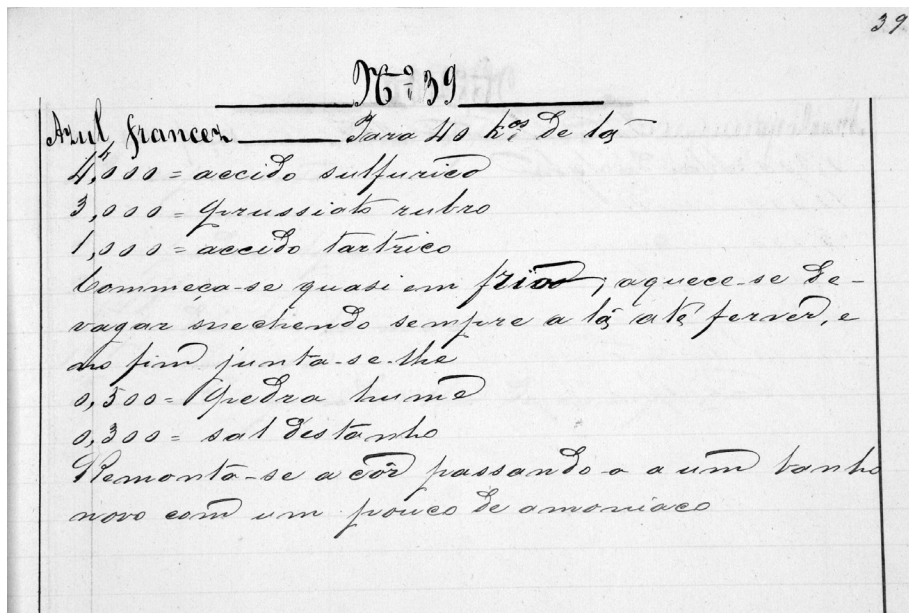 39
Nº 39
Azul francez Para 40 kos de lã
4,000 = accido sulfurico
3,000 = prussiato rubro
1,000 = accido tartrico
Commeça-se quasi em frio, aquece-se de-
vagar mechendo sempre a lã até ferver, e
no fim junta-se-lhe
0,500 = pedra hume
0,300 = sal destanho
Remonta-se a côr passando-o a um banho
novo com um pouco de amoniaco